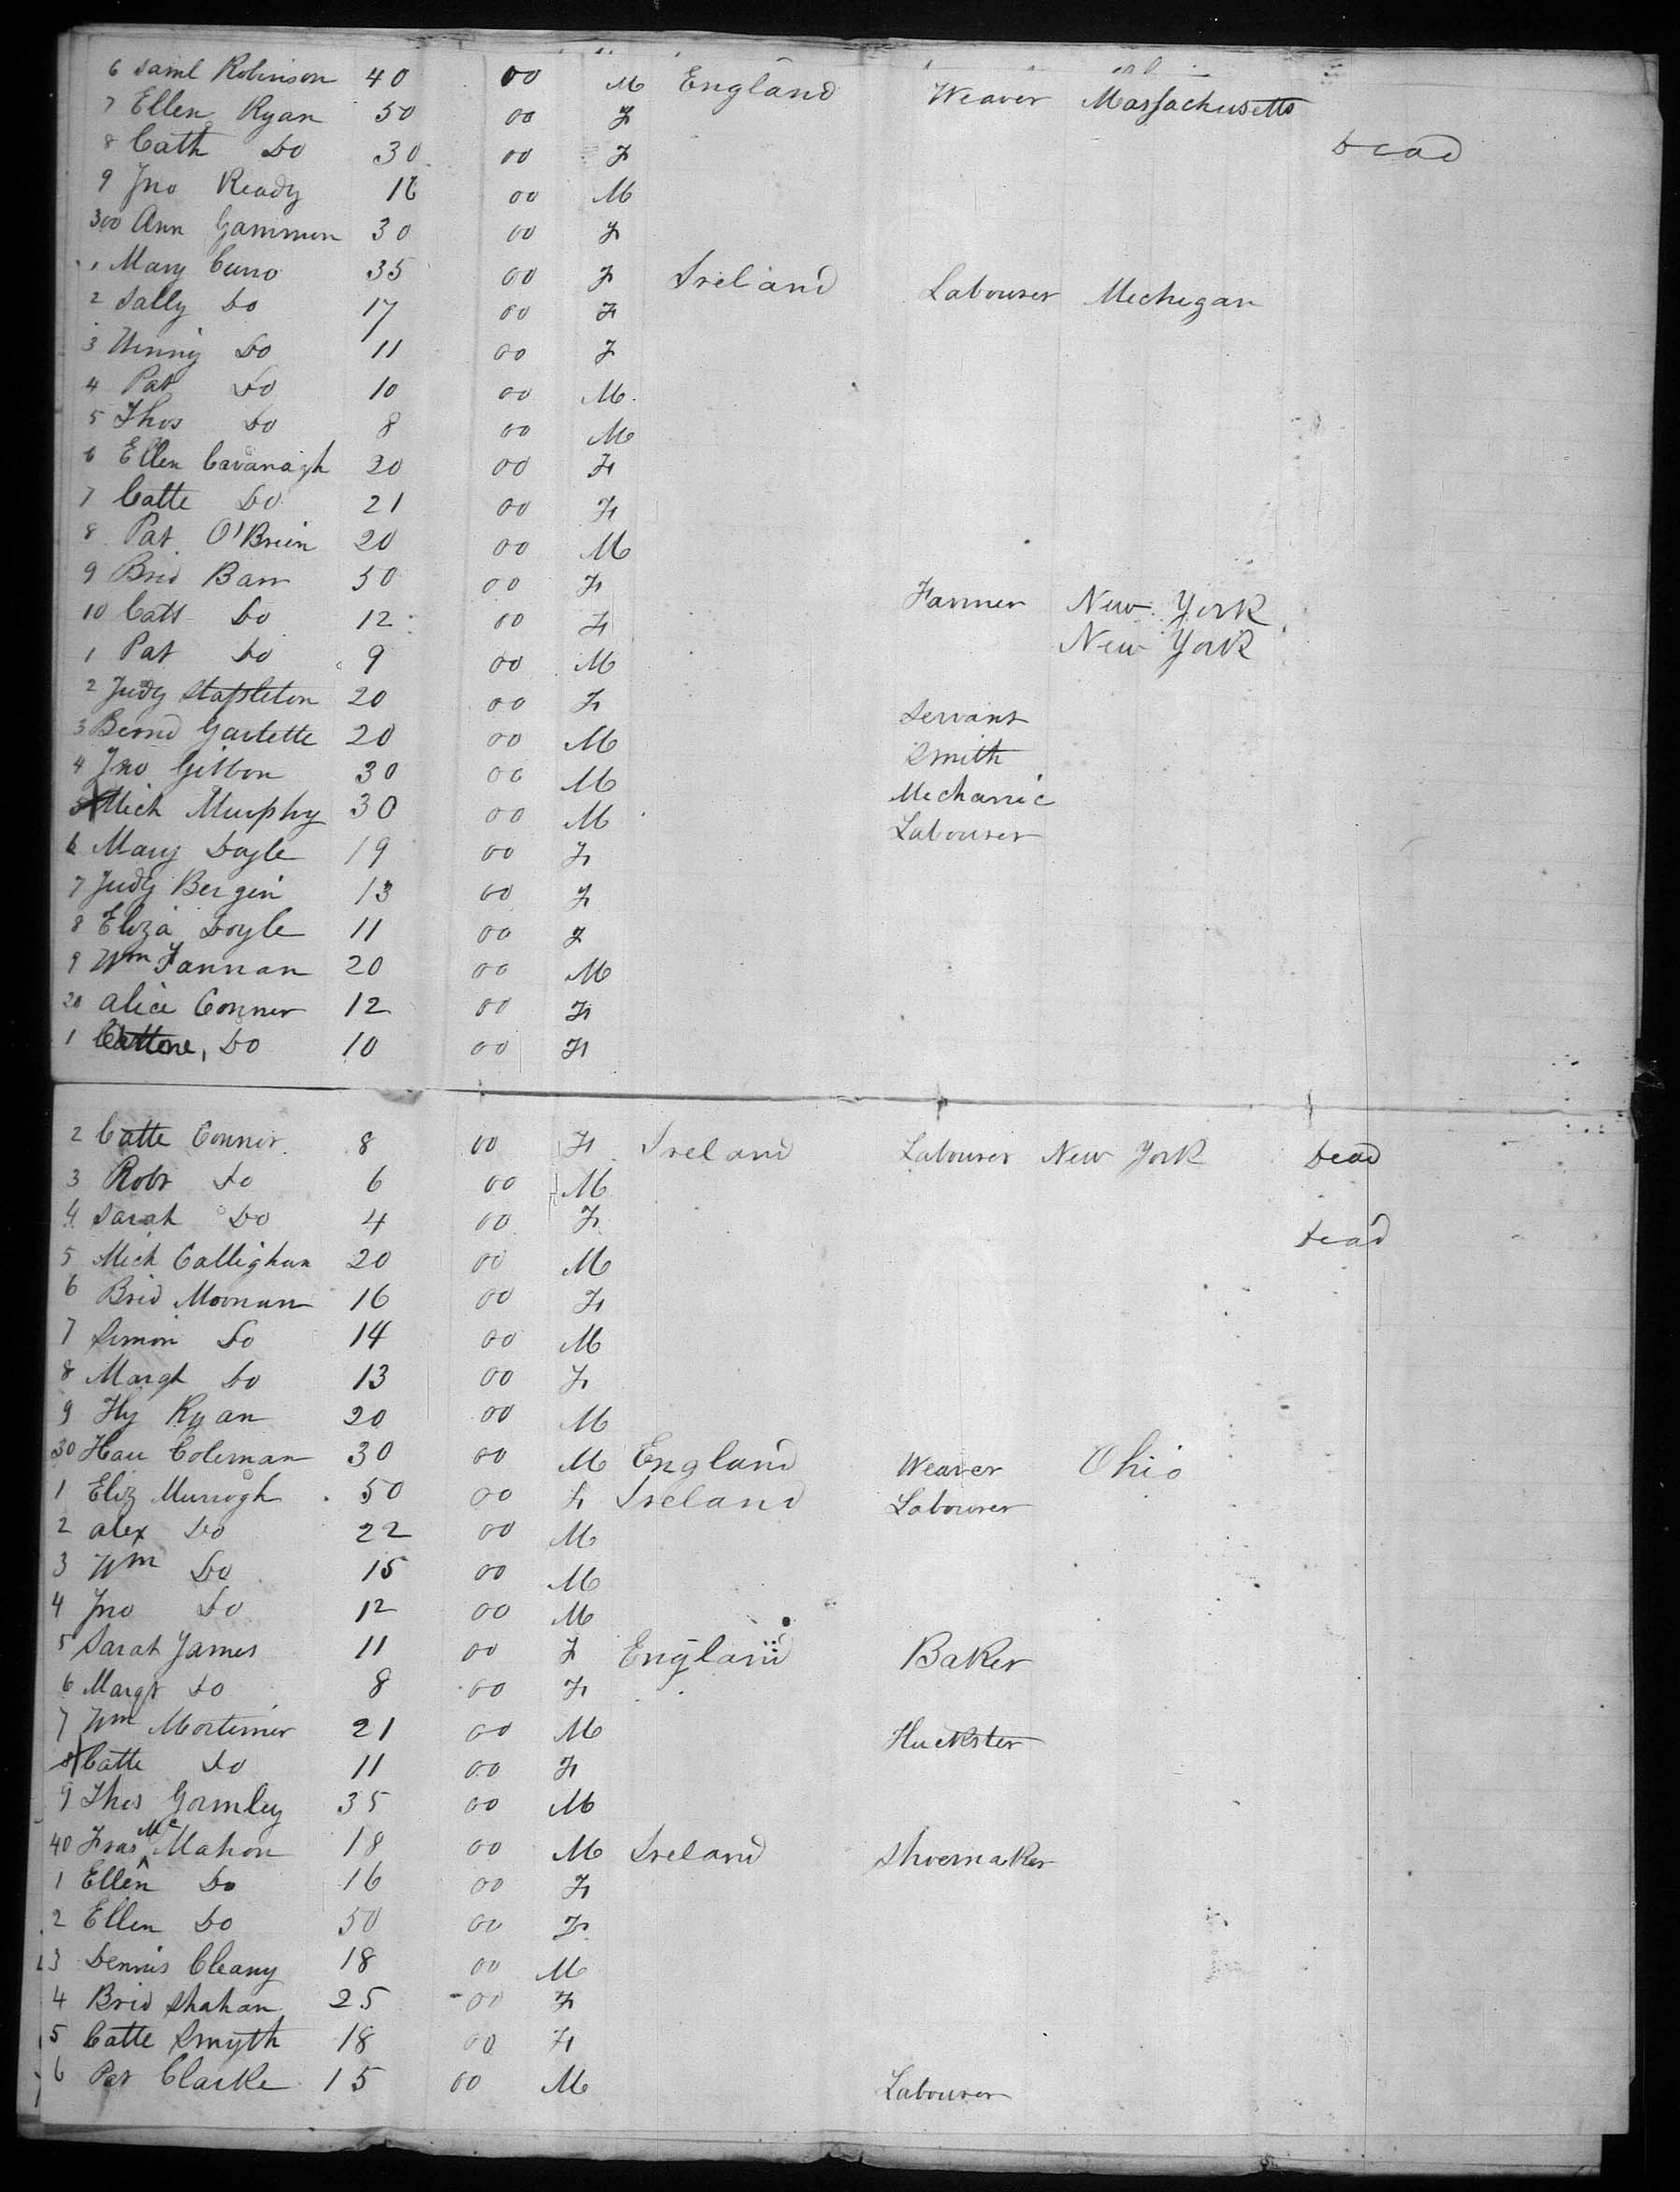 6 Saml Robinson 40 00 M England Weaver Massachusetts
7 Ellen Ryan 50 00 F
8 Cath Do 30 00 F Dead
9 Jno Ready 16 00 M
300 Ann Gammon 30 00 F
1 Mary 35 00 F Ireland Labourer Mechegan
2 Sally Do 17 00 F
3 Winny Do 11 00 F
4 Pat Do 10 00 M
5 Thos Do 8 00 M
6 Ellen Cavanagh 20 00 F
7 Catte Do 21 00 F
8 Pat O'Brien 20 00 M
9 Brid Barr 50 00 F Farmer New York
10 Catt Do 12 00 F New York
1 Pat Do 9 00 M
2 Judy Stapleton 20 00 F Servant
3 Bernd Gartette 20 00 M Smith
4 Jno Gibbon 30 00 M Mechanic
5 Mich Murphy 30 00 M Labourer
6 Mary Doyle 19 00 F
7 Judy Bergin 13 00 F
8 Eliza Doyle 11 00 F
9 Wm Fannan 20 00 M
20 Alice Conner 12 00 F
1 Do 10 00 F
2 Catte Connor 8 00 F Ireland Labourer New York Dead
3 Robt Do 6 00 M
4 Sarah Do 4 00 F Dead
5 Mich Callighan 20 00 M
6 Brid Moonan 16 00 F
7 Simon Do 14 00 M
8 Margt Do 13 00 F
9 Hy Ryan 20 00 M
30 Coleman 30 00 M England Weaver Ohio
1 Eliz Murrogh 50 00 F Ireland Labourer
2 Alex Do 22 00 M
3 Wm Do 15 00 M
4 Jno Do 12 00 M
5 Sarah James 11 00 F England Baker
6 Margt Do 8 00 F
7 Wm Mortimer 21 00 M Huckster
8 Catte Do 11 00 F
9 Thos Gormley 35 00 M
40 Fras McMahon 18 00 M Ireland Shoemaker
1 Ellen Do 16 00 F
2 Ellen Do 50 00 F
3 Dennis Cleany 18 00 M
4 Brid Shahan 25 00 F
5 Catte Smyth 18 00 F
6 Pat Clarke 15 00 M Labourer